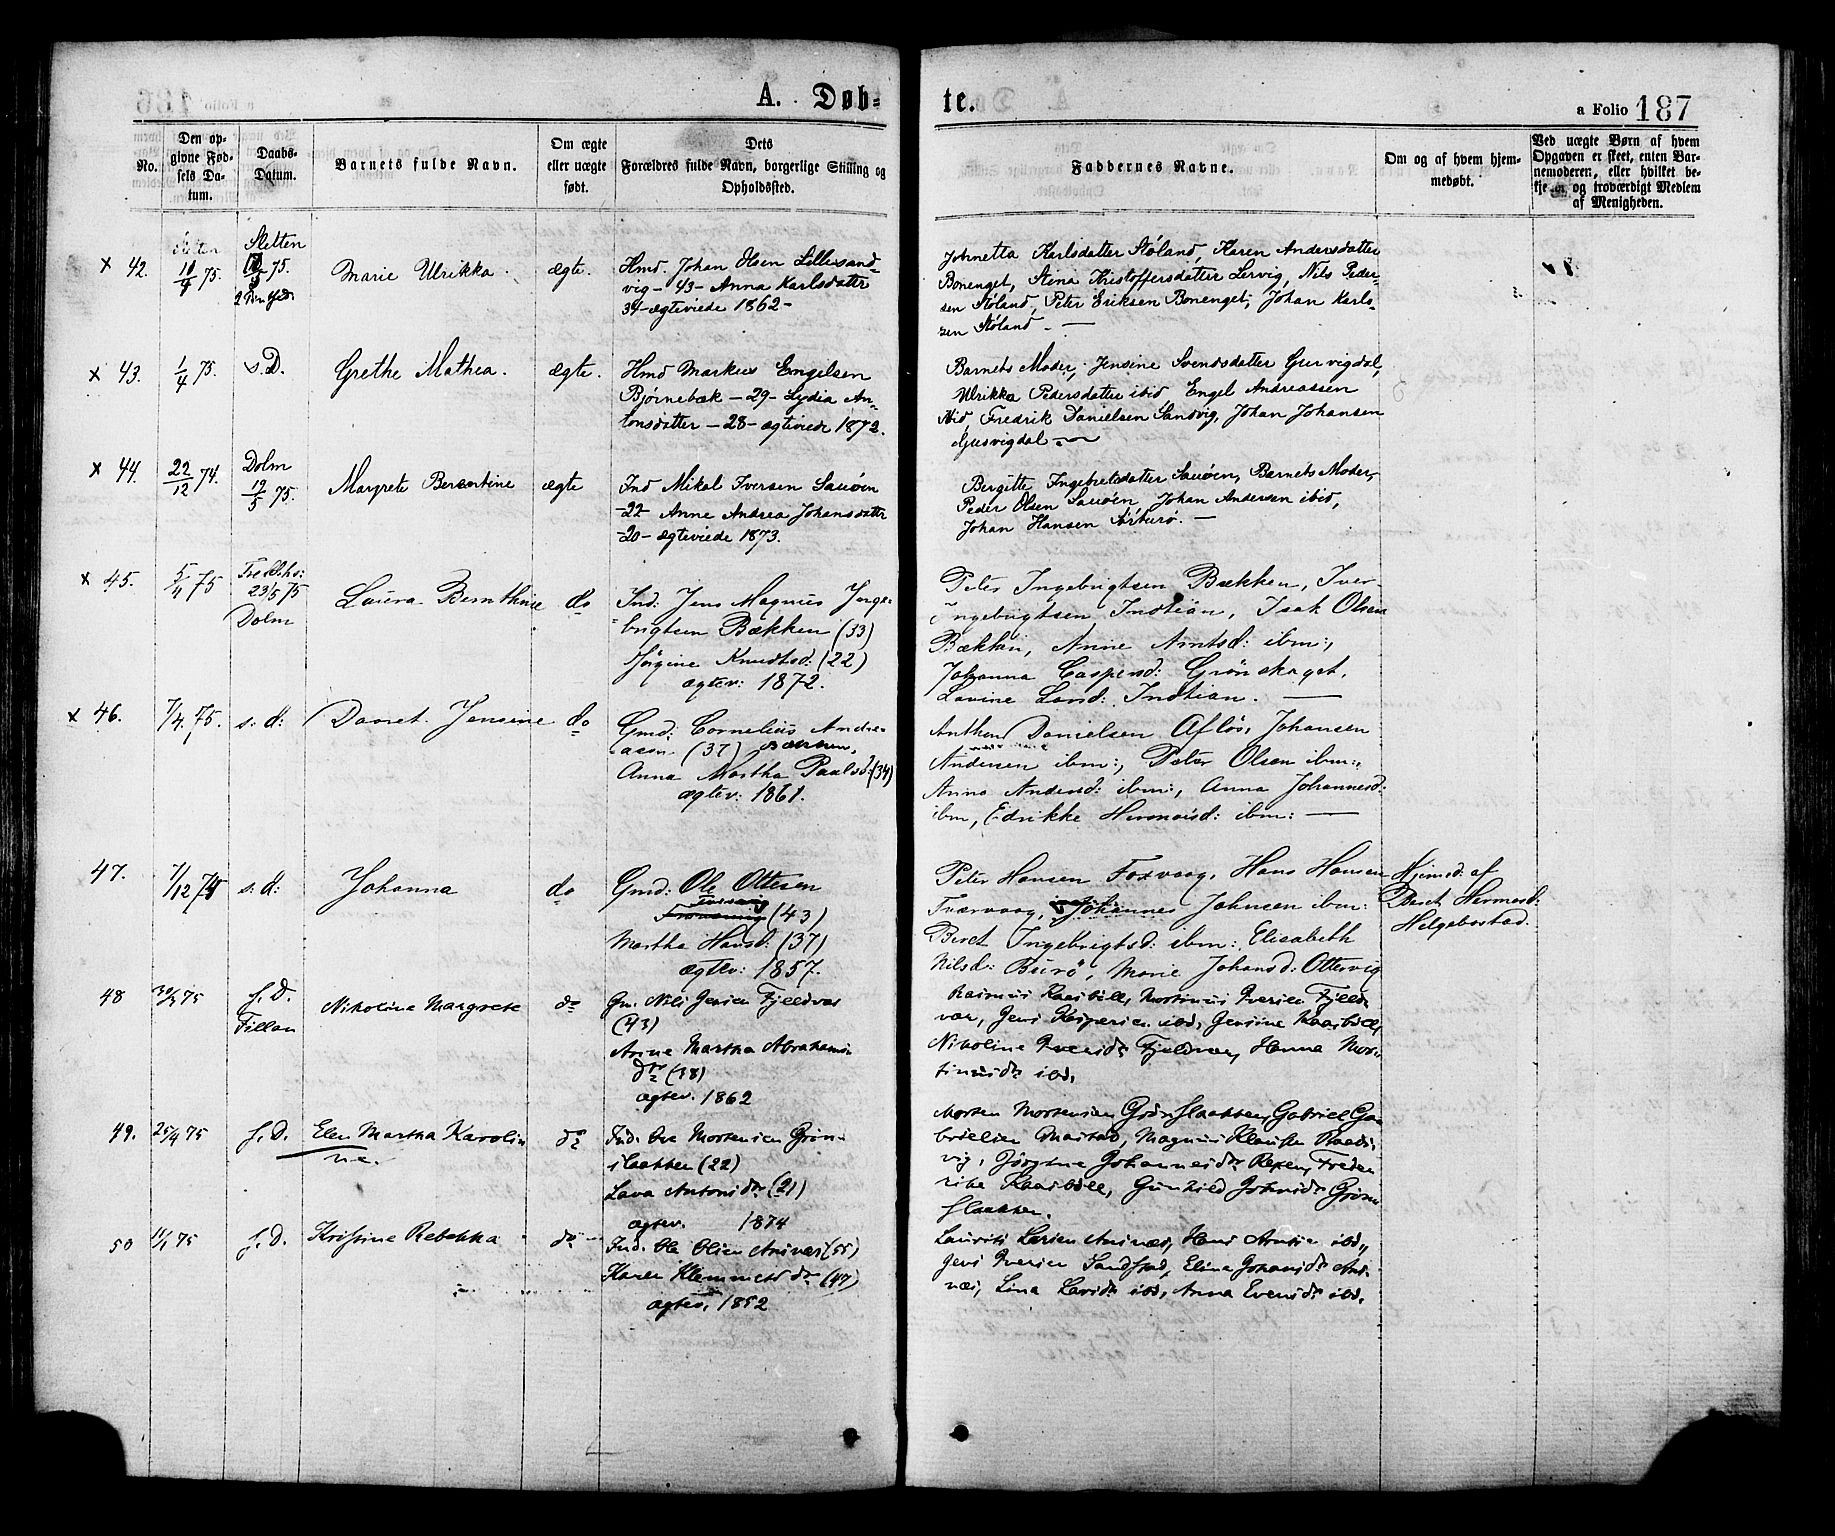 A. Døb-
te.
a Folio 187
No.
Den op-
givne Fød-
sels Da-
tum.
Daabs-
Datum.
Barnets fulde Navn.
Om ægte
eller uægte
født.
Dets
Forældres fulde Navn, borgerlige Stilling og
Opholdssted.
Faddernes Navne.
Om og af hvem hjem-
medøbt.
Ved uægte Børn af hvem
Opgaven er skeet, enten Bar-
nemoderen, eller hvilket be-
kjendt og troværdigt Medlem
af Menigheden.
x 42.
10/4 75.
Sletten
75.
Marie Ulrikka.
ægte.
Hmd. Johan Olsen Lillesand-
vig - 43 - Anna Karlsdatter
34 - ægteviede 1862 -
Johnetta Karlsdatter Støland, Karen Andersdatter
Bonenget, Stina Kristoffersdatter Lervig, Nils Peder-
sen Støland, Peter Eriksen Bonenget, Johan Karls-
sen Støland. -
x 43.
1/4 75.
s.D.
Grethe Mathea.
ægte.
Hmd Markus Engelsen
Bjørnebæk - 29 - Lydia An-
tonsdatter - 28 - ægteviede 1872.
Barnets Moder, Jensine Svendsdatter Gusvigdal,
Ulrikka Pedersdatter ibid, Engel Andreassen
ibid, Fredrik Danielsen Sandvig, Johan Johansen
Gusvigdal -
x 44.
22/12 74.
Dolm
19/5 75.
Margrete Berentine
ægte
Ind Mikal Iversen Sauøen
- 22 - Anne Andrea Johansdatter
- 20 - ægteviede 1873.
Bergitte Ingebretsdatter Sauøen, Barnets Moder,
Peder Olsen Sauøen, Johan Andersen ibid,
Johan Hansen -
x 45.
5/4 75
23/5 75
Dolm
Laura Bernthine
do
Ind: Jens Magnus Inge-
brigtsen Bækken (33)
Jørgine Knudtsd: (22)
ægtev: 1872.
Peter Ingebrigtsen Bækken, Iver
Ingebrigtsen Indtian, Isak Olsen
Bækken, Anne Arntsd: ibm:,
Johanna Caspersd: Grönskaget,
Lovine Land: Indtian. -
x 46.
7/4 75.
s: d:
Daaret Jensine
do
Gmd: Cornelius Andre-
asen (37)
Anna Martha Paalsd: (34)
ægtev: 1861.
Anthon Danielsen Aflös, Johansen
Andersen ibm:, Peter Olsen ibm:,
Anna Andersd: ibm:, Anna Johannesd:
ibm, Edrikke Hermoisd: ibm: -
47.
7/12 74
s: d:
Johanna
do
Gmd: Ole Ottesen
(43)
Martha Hansd: (37)
ægtev: 1857.
Peter Hansen Foxvaag, Hans Hansen
Tværvaag, Johannes Johnsen ibm:
Beret Ingebrigtsd: ibm: Elisabeth
Nilsd: Burö, Marie Johansd: Ottervig
Hjemd: af
Beret Hermosd:
Helgebostad.
48
75
s. D.
Fillan
Nikoline Margrete
do
Gm. Nils Jensen Fjeldvær
(43)
Anne Martha Abrahams
dtr (38)
ægtev. 1862
Rasmus Kaasböll, Mortinus Iversen Fjeld-
vær, Jens Kaspersen ibd, Jensine Kaasböll,
Nikoline Iversdr Fjeldvær, Hanna Mor-
tinusdr ibd,
49.
25/4 75
s. D.
Elen Martha Karolin
ne.
do
Ind. Ole Mortensen Grön-
slakken (22)
Lava Antonsdr (21)
ægtev. 1874
Morten Mortensen Grönslakken, Gabriel Ga-
brielsen Mastad, Magnus Klausen
vig, Jörgine Johannesdr Reksen, Frede-
rike Kaasböll, Gunhild Johnsdr Grön-
slakken.
50
75
s. D.
Kristine Rebekka
do
Ind. Ole Olsen Ansnæs (55)
Karen Klemmetsdr (47)
ægtev. 1852
Laurits Larsen Ansnæs, Hans ibd,
Jens Iversen Sandstad, Elina Johansdr Ans-
næs, Lina Larsdr ibd, Anna Evensdr ibd,